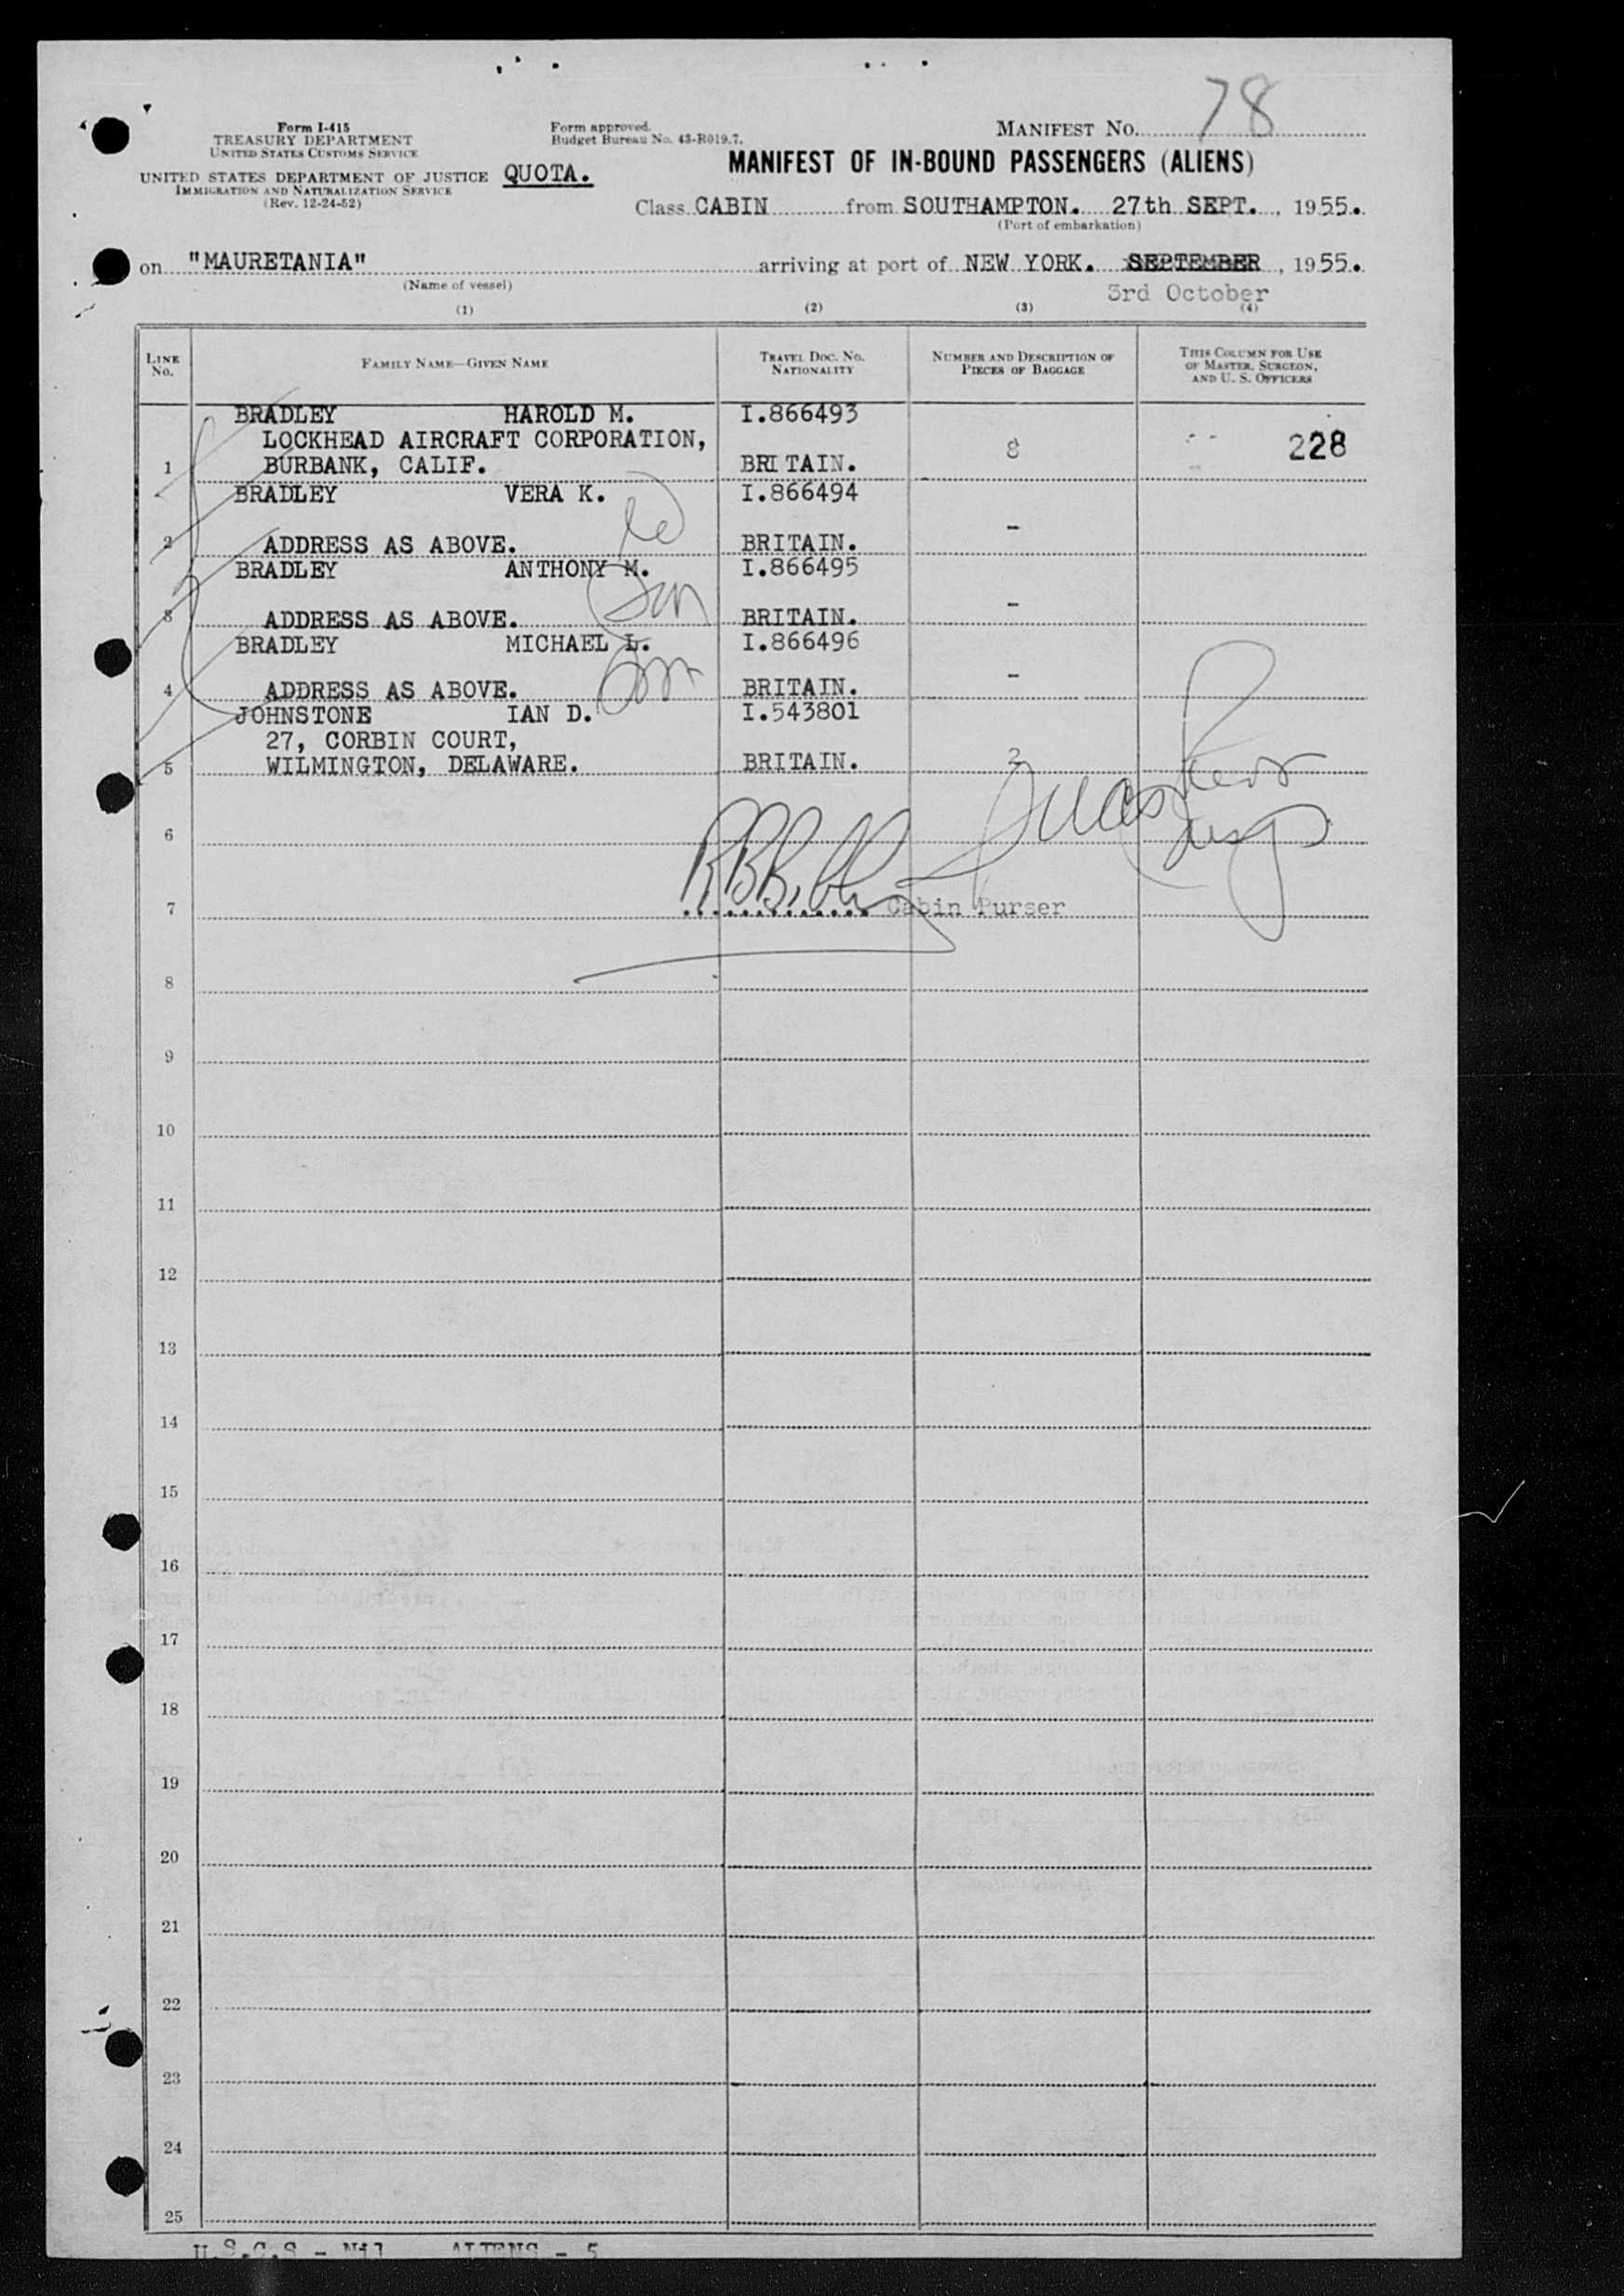 78
Form I-415
TREASURY DEPARTMENT
UNITED STATES CUSTOMS SERVICE
UNITED STATES DEPARTMENT OF JUSTICE
IMMIGRATION AND NATURALIZATION SERVICE
(Rev. 12-24-52)
Form approved.
Budget Bureau No. 43-R019.7.
QUOTA.
MANIFEST NO.
MANIFEST OF IN-BOUND PASSENGERS (ALIENS)
Class CABIN from SOUTHAMPTON. 27th SEPT., 1955.
(Port of embarkation)
on "MAURETANIA" arriving at port of NEW YORK. SEPTEMBER, 1955.
(Name of vessel)
3rd October
(1) (2) (3) (4)
LINE NO.
FAMILY NAME—GIVEN NAME
TRAVEL DOC. NO.
NATIONALITY
NUMBER AND DESCRIPTION OF
PIECES OF BAGGAGE
THIS COLUMN FOR USE
OF MASTER, SURGEON,
AND U. S. OFFICERS
BRADLEY HAROLD M. I.866493
LOCKHEAD AIRCRAFT CORPORATION, 8 228
1 BURBANK, CALIF. BRITAIN.
BRADLEY VERA K. I.866494
-
2 ADDRESS AS ABOVE. BRITAIN.
BRADLEY ANTHONY M. I.866495
-
3 ADDRESS AS ABOVE. BRITAIN.
BRADLEY MICHAEL L. I.866496
-
4 ADDRESS AS ABOVE. BRITAIN.
JOHNSTONE IAN D. I.543801
27, CORBIN COURT,
5 WILMINGTON, DELAWARE. BRITAIN. 2
6
7 Cabin Purser
8
9
10
11
12
13
14
15
16
17
18
19
20
21
22
23
24
25
U.S.C.S - Nil ALIENS - 5